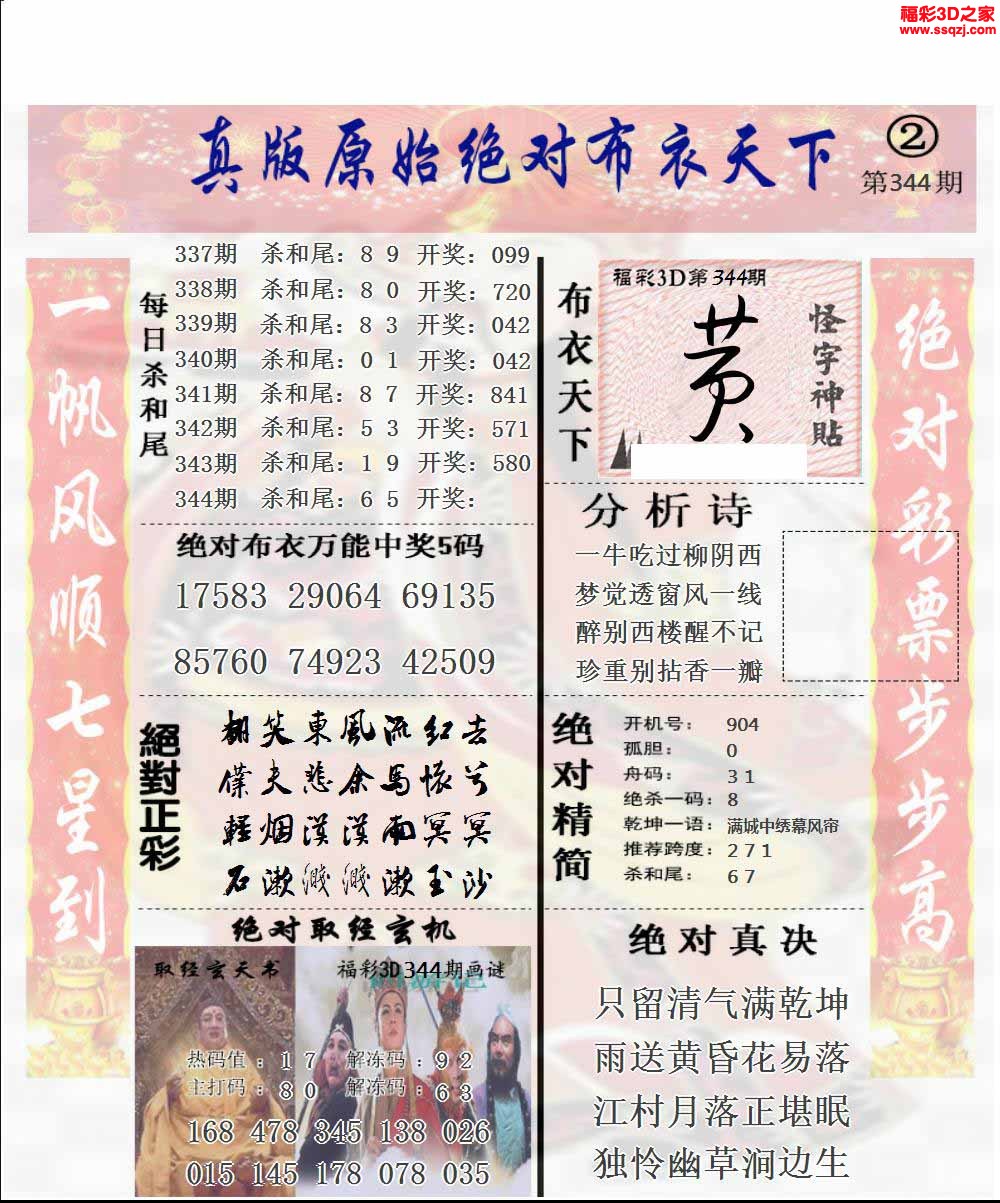 福彩3D之家
www.ssqzj.com
真版原始绝对布衣天下
②
第344期
一帆风顺七星到
每日杀和尾
337期 杀和尾：8 9 开奖：099
338期 杀和尾：8 0 开奖：720
339期 杀和尾：8 3 开奖：042
340期 杀和尾：0 1 开奖：042
341期 杀和尾：8 7 开奖：841
342期 杀和尾：5 3 开奖：571
343期 杀和尾：1 9 开奖：580
344期 杀和尾：6 5 开奖：
绝对布衣万能中奖5码
17583 29064 69135
85760 74923 42509
絕對正彩
翻笑東風流红去
僕夫悲余馬懷兮
輕烟漠漠雨冥冥
石漱濺濺漱玉沙
绝对取经玄机
取经玄天书
福彩3D344期画谜
热码值：1 7 解冻码：9 2
主打码：8 0 解冻码：6 3
168 478 345 138 026
015 145 178 078 035
布衣天下
福彩3D第344期
黄
怪字神贴
分析诗
一牛吃过柳阴西
梦觉透窗风一线
醉别西楼醒不记
珍重别拈香一瓣
绝对精简
开机号： 904
孤胆： 0
舟码： 3 1
绝杀一码：8
乾坤一语：满城中绣幕风帘
推荐跨度：2 7 1
杀和尾： 6 7
绝对真决
只留清气满乾坤
雨送黄昏花易落
江村月落正堪眠
独怜幽草涧边生
绝对彩票步步高